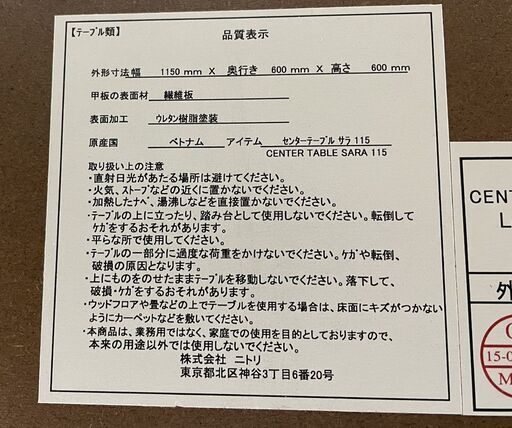 【テーブル類】
品質表示
外形寸法幅 1150 mm X 奥行き 600 mm X 高さ 600 mm
甲板の表面材 繊維板
表面加工 ウレタン樹脂塗装
原産国 ベトナム アイテム センターテーブル サラ 115
CENTER TABLE SARA 115
取り扱い上の注意
・直射日光があたる場所は避けてください。
・火気、ストーブなどの近くに置かないでください。
・加熱したナベ、湯沸しなどを直接置かないでください。
・テーブルの上に立ったり、踏み台として使用しないでください。転倒して
ケガをするおそれがあります。
・平らな所で使用してください。
・テーブルの一部分に過度な荷重をかけないでください。ケガや転倒、
破損の原因となります。
・上にものをのせたままテーブルを移動しないでください。落下して、
破損・ケガをするおそれがあります。
・ウッドフロアや畳などの上でテーブルを使用する場合は、床面にキズがつかない
ようにカーペットなどを敷いてください。
・本商品は、業務用ではなく、家庭での使用を目的としておりますので、
本来の用途以外では使用しないでください。
株式会社 ニトリ
東京都北区神谷3丁目6番20号
CENT
L
外
15-0
M